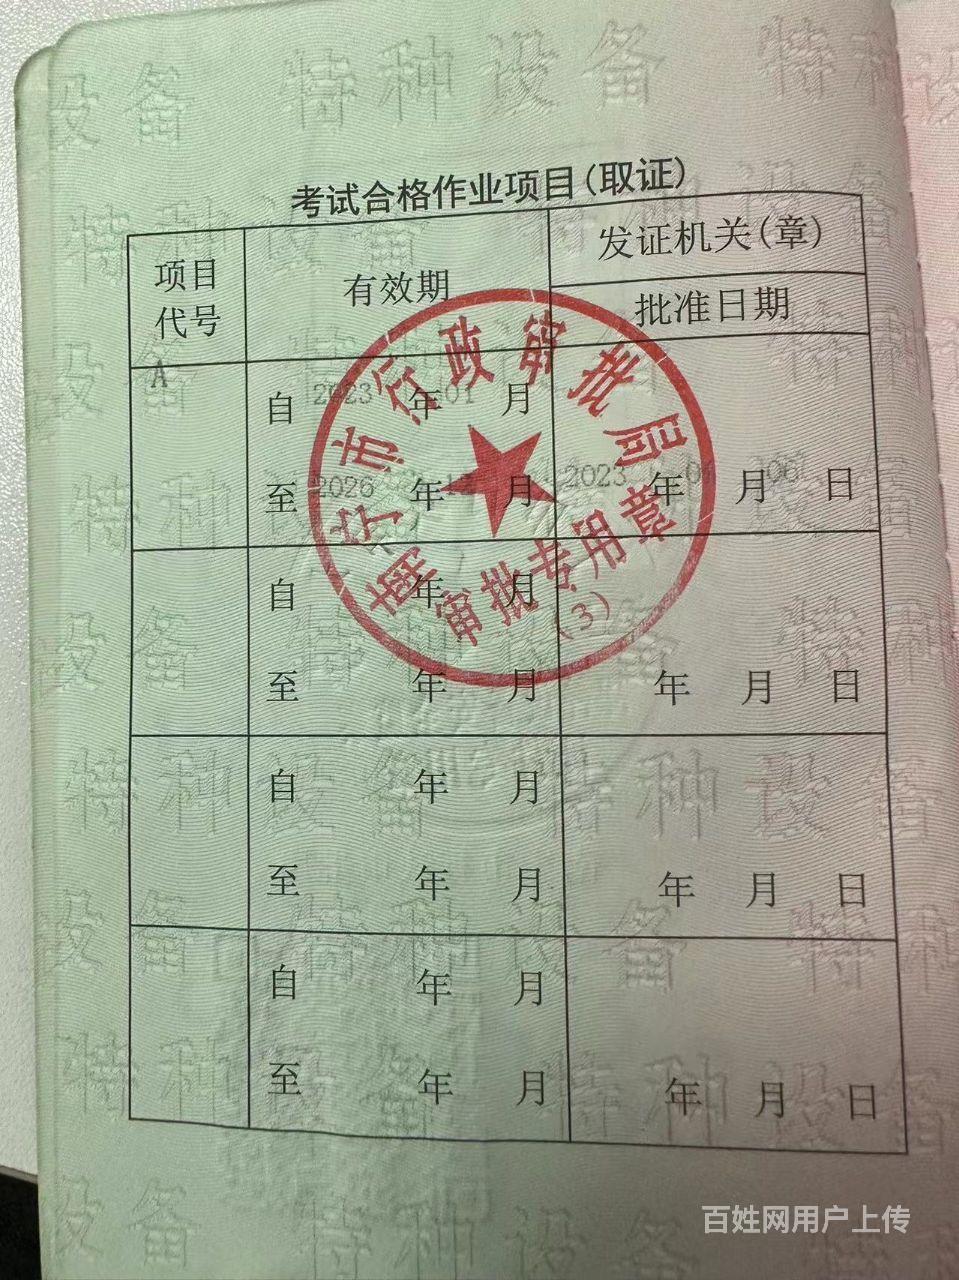 考试合格作业项目(取证)
项目代号
有效期
发证机关(章)
批准日期
A
自 2023 年 01 月
至 2026 年 12 月
2023 年 01 月 06 日
南宁市行政审批局
审批专用章
(3)
自 年 月
至 年 月
年 月 日
自 年 月
至 年 月
年 月 日
自 年 月
至 年 月
年 月 日
特种设备
百姓网用户上传